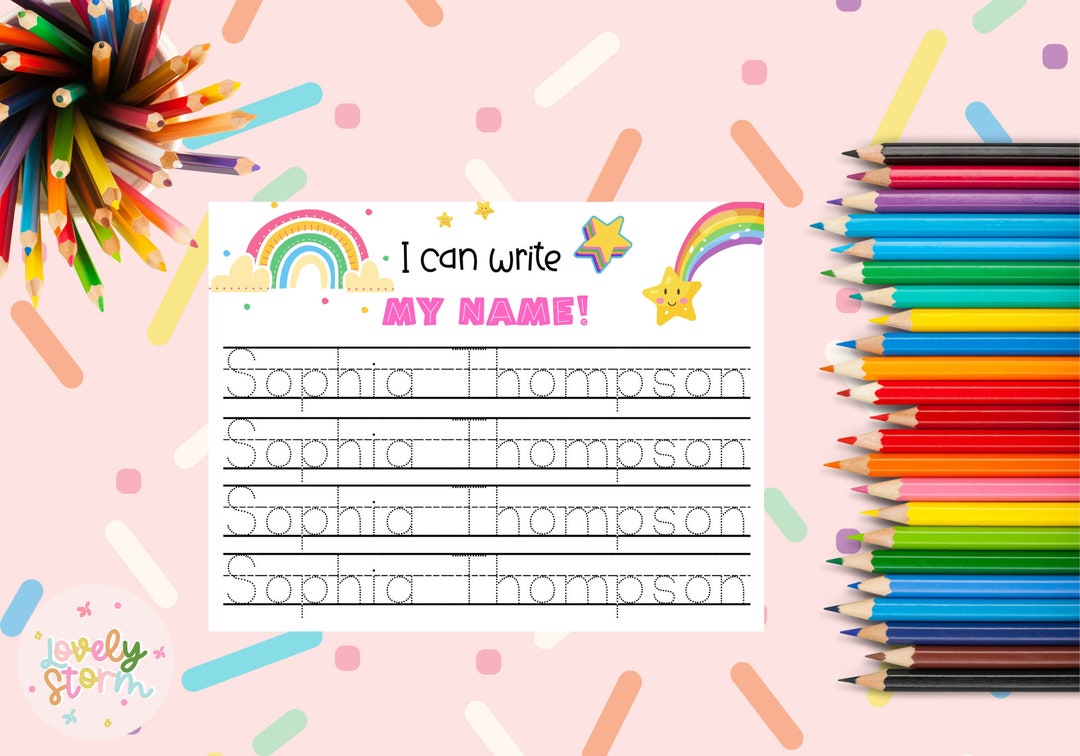 I can write
MY NAME!
Sophia Thompson
Sophia Thompson
Sophia Thompson
Sophia Thompson
Lovely
Storm